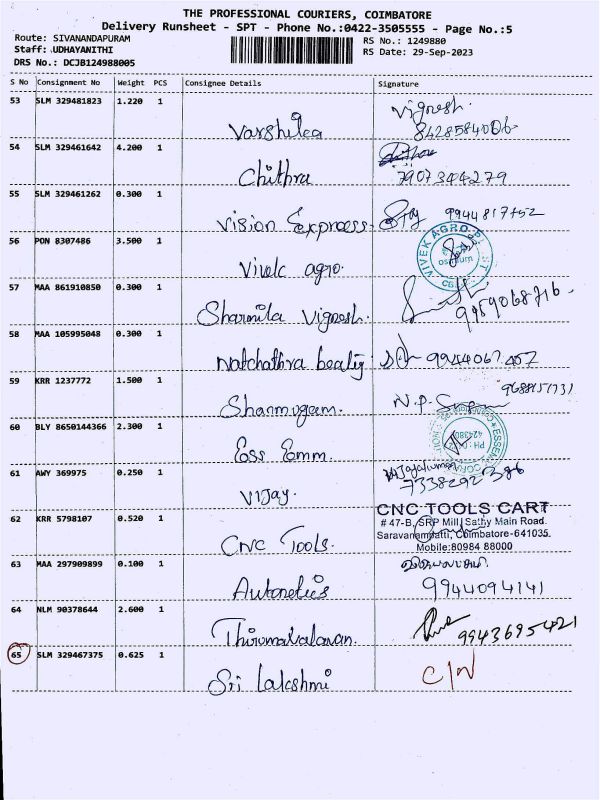 THE PROFESSIONAL COURIERS, COIMBATORE
Delivery Runsheet - SPT - Phone No.:0422-3505555 - Page No.:5
Route: SIVANANDAPURAM
RS No.: 1249880
Staff: UDHAYANITHI
RS Date: 29-Sep-2023
DRS No.: DCJB124988005
S No Consignment No Weight PCS Consignee Details Signature
53 SLM 329481823 1.220 1
Vignesh.
Varshilea 8428584006
54 SLM 329461642 4.200 1
Chithra 7907344279
55 SLM 329461262 0.300 1
Vision Express. 9944817452
56 PON 8307486 3.500 1
VIVEK AGRO
Vivek agro.
57 MAA 861910850 0.300 1
Sharmila Vignesh. 9959068716
58 MAA 105995048 0.300 1
Natchathra beatiy 9944067457
59 KRR 1237772 1.500 1
Shanmugam. N.P.
60 BLY 8650144366 2.300 1
Ess Emm.
61 AWY 369975 0.250 1
Vijayakumar
Vijay. 7338292386
62 KRR 5798107 0.520 1
CNC TOOLS CART
# 47-B, SRP Mill, Sathy Main Road.
Saravanampatti, Coimbatore-641035.
Mobile:80984 88000
CNC Tools.
63 MAA 297909899 0.100 1
Autonetics 9944094141
64 NLM 90378644 2.600 1
Thirumavalavan. 9943695421
65 SLM 329467375 0.625 1
Sri Lakshmi C/N